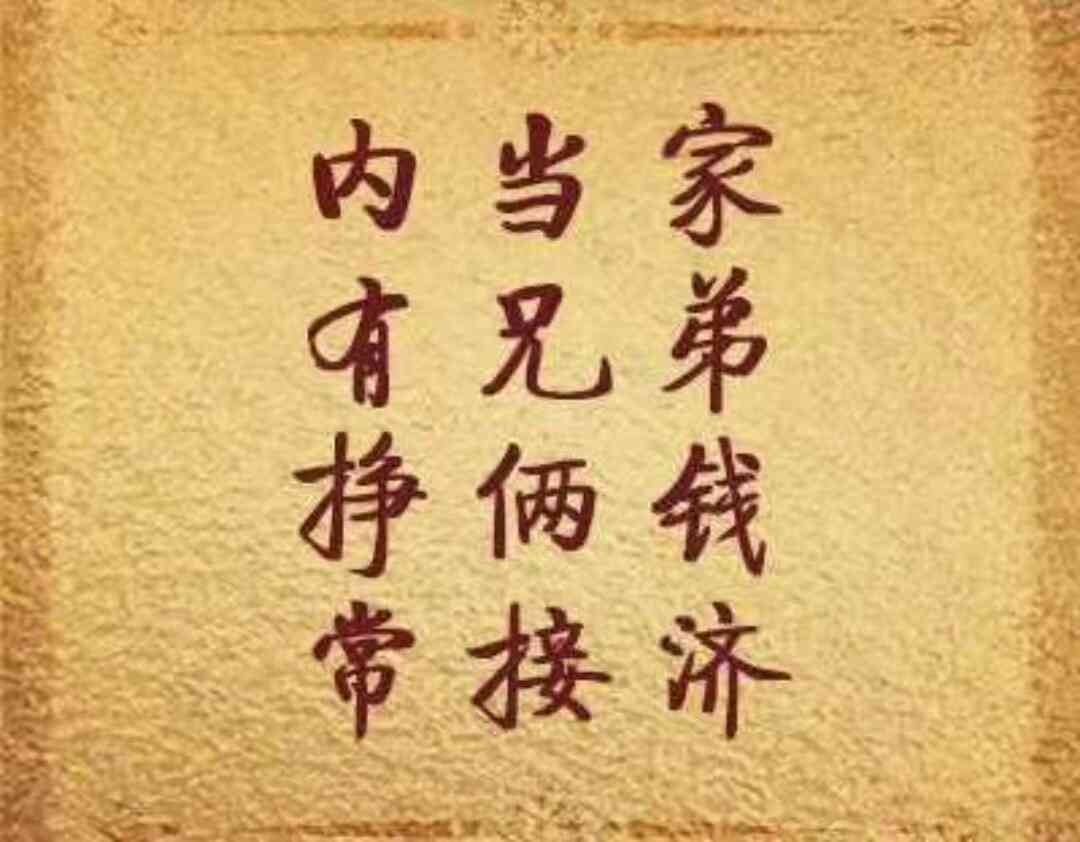 内当家
有兄弟
挣俩钱
常接济